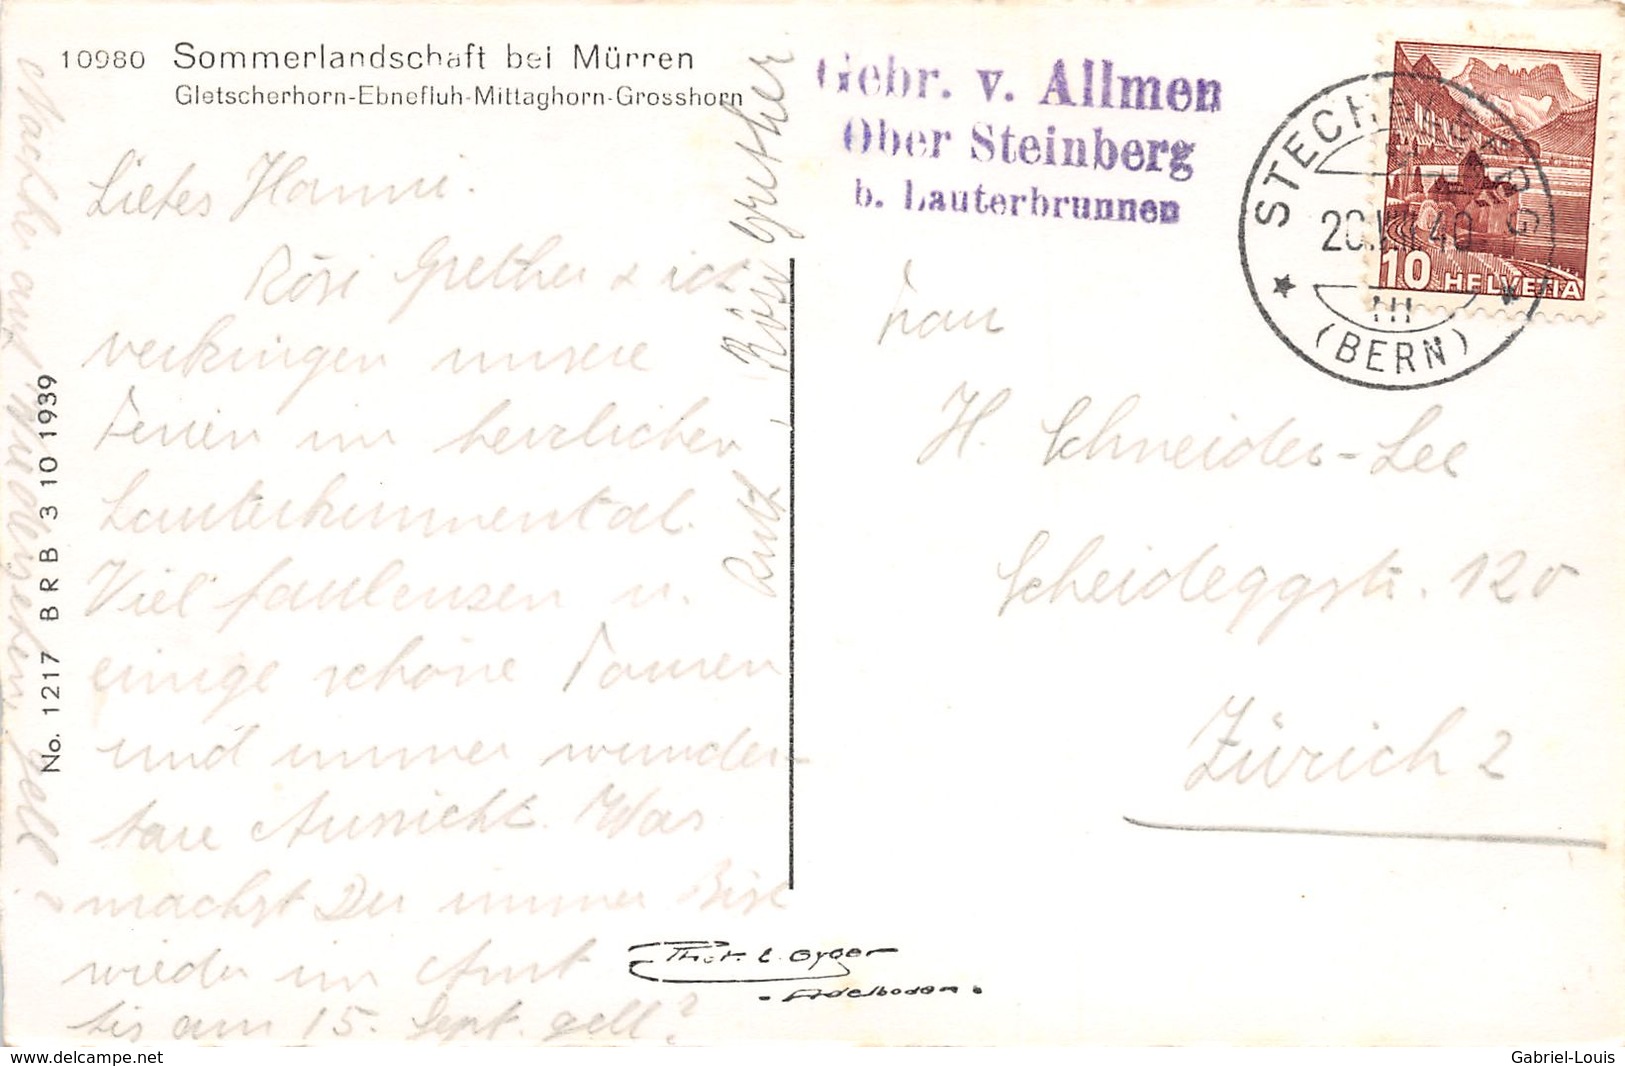 10980 Sommerlandschaft bei Mürren
Gletscherhorn-Ebnefluh-Mittaghorn-Grosshorn
Gebr. v. Allmen
Ober Steinberg
b. Lauterbrunnen
STECHELBERG
20.VIII.40
III
(BERN)
10 HELVETIA
Liebes Hanni.
Rösi Grether & ich
verbringen unsere
Ferien im herrlichen
Lauterbrunnental.
Viel faulenzen u.
einige schöne Touren
und immer wunder-
bare Aussicht. Was
machst Du immer Bist
wieder im Amt
bis am 15. Sept. gell?
Ruth, Rösi Grether
No. 1217 BRB 3 10 1939
Frau
H. Schneider-Lee
Scheideggstr. 120
Zürich 2
Phot. E. Gyger
-Adelboden-
delcampe.net
Gabriel-Louis